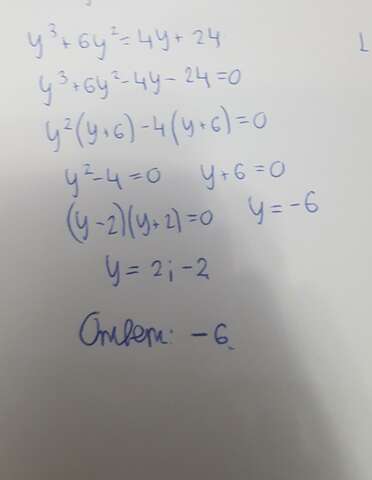 y³+6y²=4y+24
y³+6y²-4y-24=0
y²(y+6)-4(y+6)=0
y²-4=0 y+6=0
(y-2)(y+2)=0 y=-6
y=2;-2
Ответ: -6.